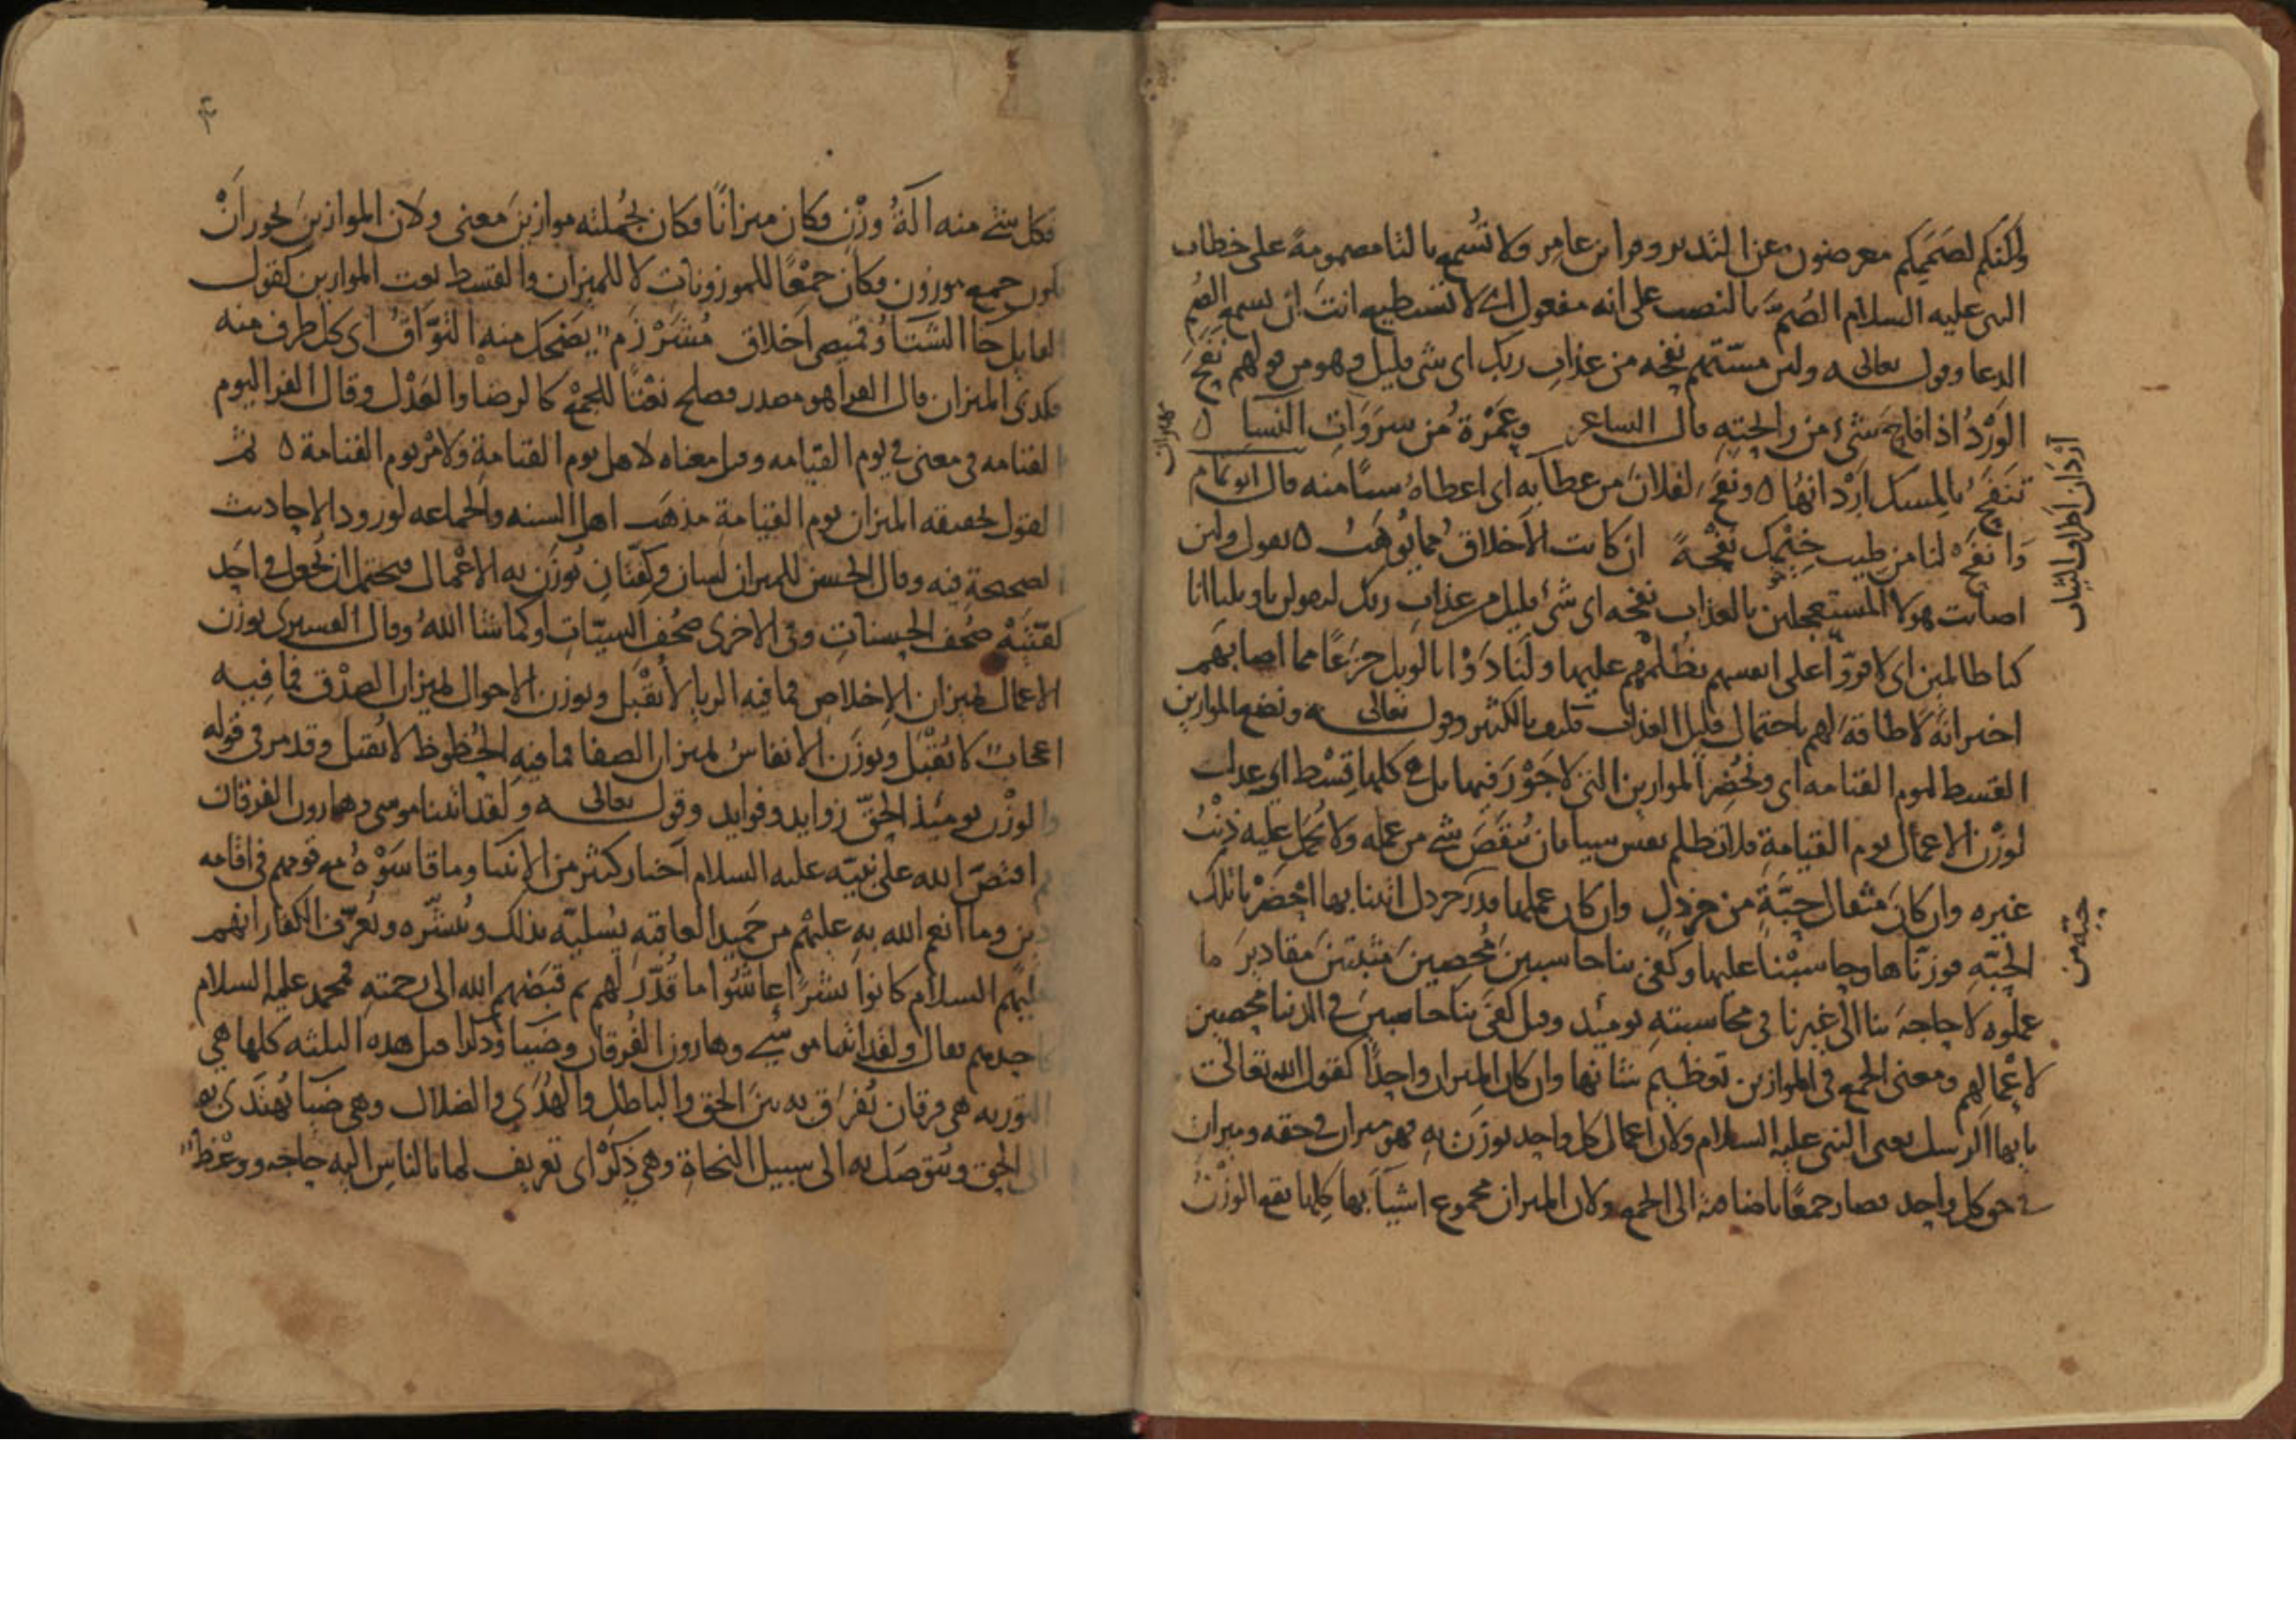 ولكنكم لصممكم معرضون عن التدبر وقرا ابن عامر ولا تُسمع بالتا مضمومة على خطاب
النبي عليه السلام الصُمَّ بالنصب على انه مفعول اي لا تستطيع انت ان تسمع الصم
الدعا وقوله تعالى ولئن مسّتهم نفحه من عذاب ربك اي شي قليل وهو من قولهم نَفَحَ
الوَرْدُ اذا فاح شيء من رايحته قال الشاعر وعَمْرةُ من سروات النسا
تنفح بالمسك اَرْدانها ونفح لفلان من عطائه اي اعطاه شيا منه قال ابو تمام
وانفَحْ لنا من طيب خِيْمك نفحةً ان كانت الاخلاق مما يُوهَبُ يقول ولئن
اصابت هولا المستعجلين بالعذاب نفحه اي شيء قليل من عذاب ربك ليقولن ياويلنا انا
كنا ظالمين اي لاقرّوا على انفسهم بظُلْمهم عليها ولنادَوْا بالويل جزعًا مما اصابهم
اخبر انه لا طاقة لهم باحتمال قليل العذاب فكيف بالكثير وقوله تعالى ونضع الموازين
القسط ليوم القيامه اي ونُحْضِر الموازين التي لا جَوْرَ فيها بل هي كلها قِسْط اي عدل
لوزْن الاعمال يوم القيامة فلا تظلم نفس شييا بان يُنقَصَ شي من عمله ولا يُحمل عليه ذنْبُ
غيره وان كان مثقال حبّةٍ من خردل وان كان عملها قدر خردل اتينا بها احْضَرْنا تلك
الحبّه فوزنّاها وحاسبْنا عليها وكفى بنا حاسبين مُحصين مثبتين مقادير ما
عملوه لا حاجه بنا الى غيرنا في محاسبته يوميذ وقيل كفى بنا حاسبين في الدنيا محصين
لاعْمالهم ومعنى الجمع في الموازين تعظيم شانها وان كان الميزان واحدًا كقول الله تعالى
يايها الرسل يعني النبي عليه السلام ولان اعمال كل واحد توزَن به فهو ميزان في حقه وميزان
في حق كل واحد فصار جمعًا باضافته الى الجمع ولان الميزان مجموع اشياَ بها كلها يقع الوزْنُ
اَرْدان اطراف الثياب
حبّه من
فكل شي منه الَةُ وزْنٍ فكان ميزانًا فكان بجُملته موازينَ معنى ولان الموازين يجوز انْ
يكون جمع موزون فكان جمْعًا للموزونات لا للميزان والقسط نعت الموازين كقول
القايل جا الشتاَ وقميصي اَخلاق شَرْزَم يضحك منه التوّاقُ اي كل طرف منه
فكذى الميزان قال الفرا هو مصدر فصلح نعْتًا للجمع كالرضا والعدْل وقال الفرا ليوم
القيامه في معنى في يوم القيامه وقيل معناه لاهل يوم القيامة ولامْر يوم القيامة ثم
القول بحقيقه الميزان يوم القيامة مذهب اهل السنه والجماعه لورود الاحاديث
الصحيحة فيه وقال الحسن للميزان لسان وكِفّتان تُوزَن به الاعْمال فيحتمل ان يُجعل في احد
كفّتَيْه صُحف الحسنات وفي الاخرى صُحُف السيّات او كما شا الله وقال القشيري توزن
الاعمال بميزان الاِخلاص فما فيه الريا لا يُقْبل وتوزن الاحوال بميزان الصدْق فما فيه
اعجابٌ لا يُقْبَل وتوزَن الانفاسُ بميزان الصفا فما فيه الحُظوظ لا يُقبل وقد مر في قوله
والوزْن يوميذ الحقّ زوايد وفوايد وقوله تعالى ولقد اتينا موسى وهارون الفرقان
اقتصّ الله على نبيّه عليه السلام اَخبار كثير من الانبيا وما قاسَوْهُ مع قومهم في اقامه
وما انعم الله به عليْهم من حَميد العاقبه يُسليّه بذلك ويُبشّره ويُعرّف الكفار انهم
عليهم السلام كانوا بشرًا عاشُوا ما قُدّر لهم ثم قبَضهم الله الى رحمته فمحمد عليه السلام
كاحدهم فقال ولقد اتينا موسى وهارون الفُرقان وضيا وذكرا قيل هذه الثلثه كلها هي
التوريه هي فرقان يُفرَق به بين الحق والباطل والهُدَى والضلال وهي ضيا يُهتدَى به
الى الحق ويُتوصَل به الى سبيل النجاة وهي ذكْرٌ اي تعريف لما بالناس اليه حاجه ووعْظٌ